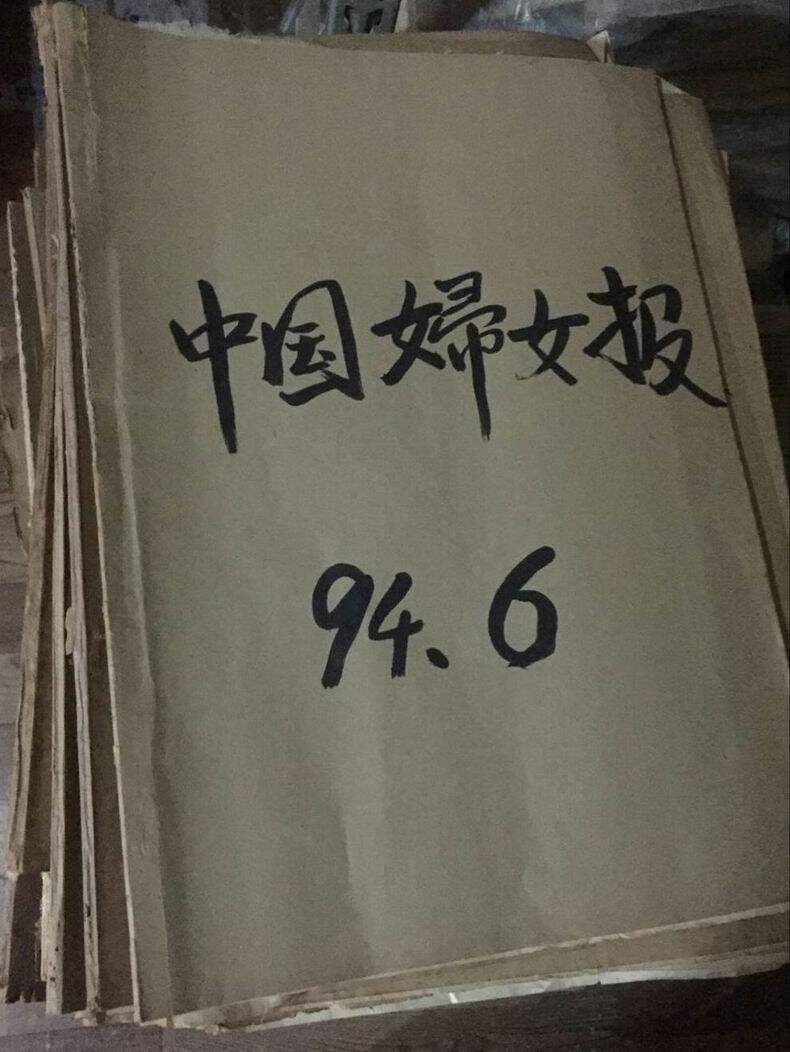 中国婦女报
94.6